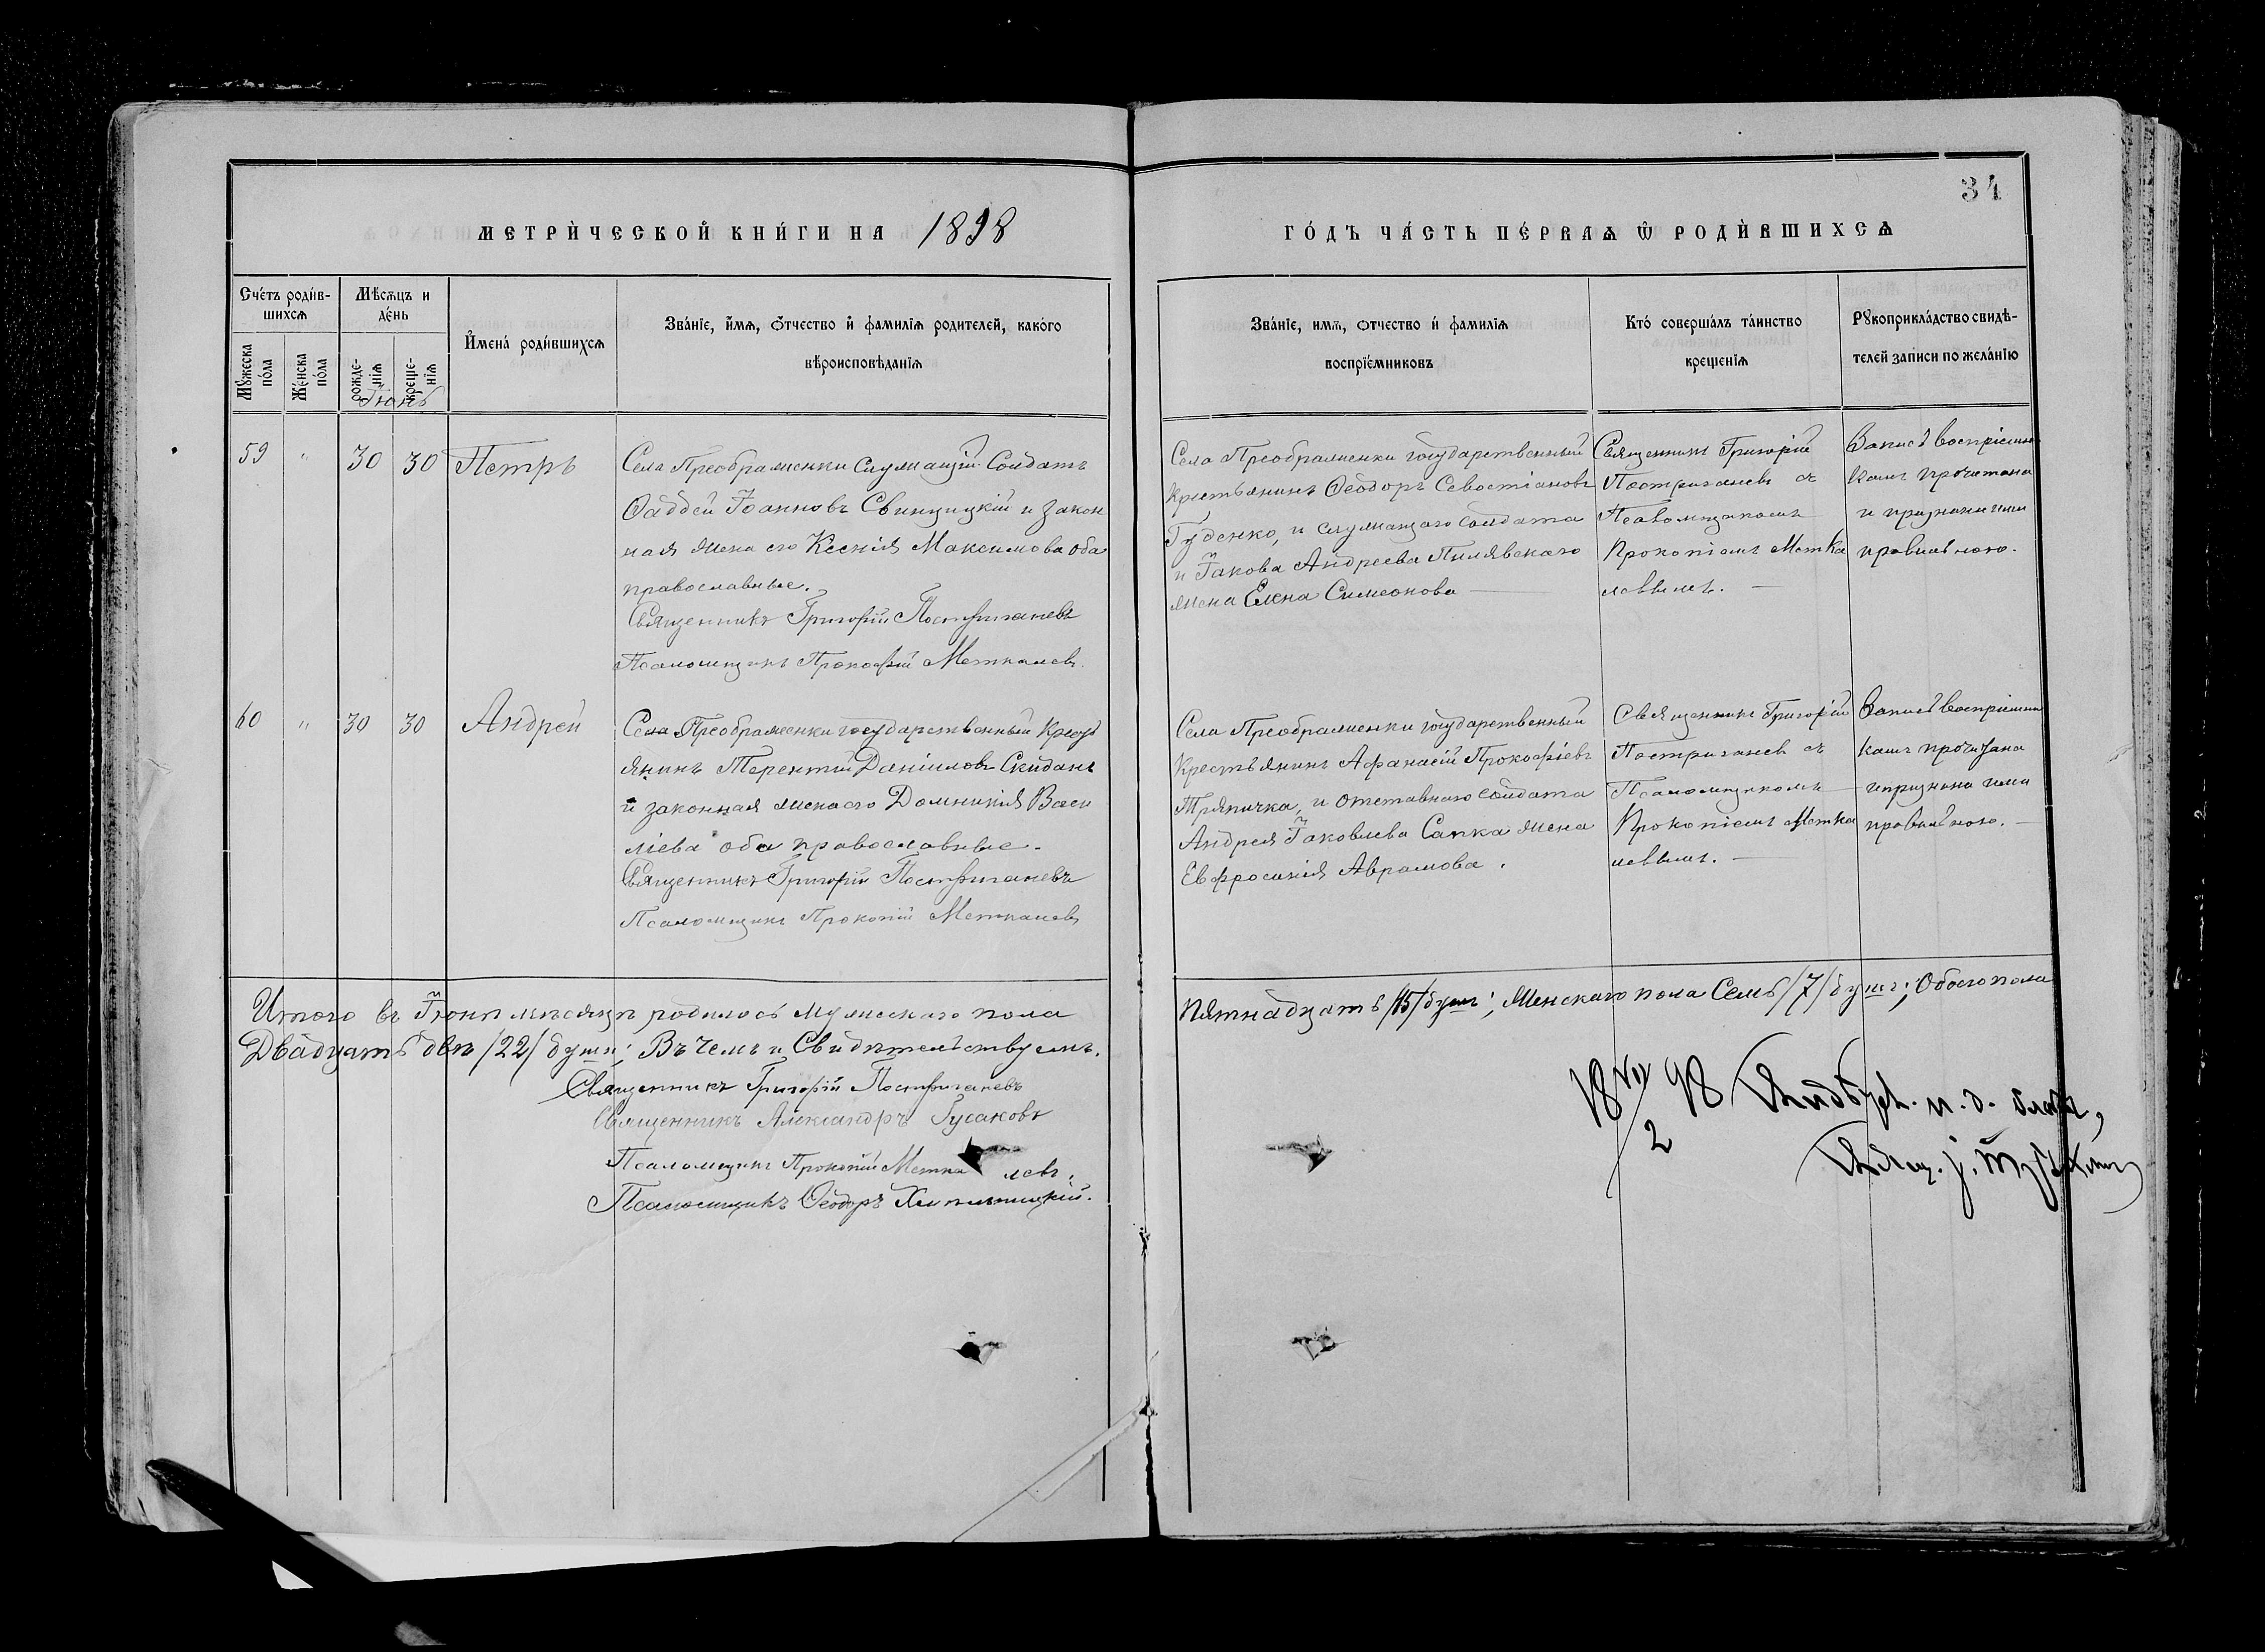 34
МЕТРИ́ЧЕСКОЙ КНИ́ГИ НА 1898
ГО́ДЪ ЧА́СТЬ ПЕ́РВАѦ Ѿ РОДИ́ВШИХСѦ
Сче́тъ роди́в-
шихсѧ
Мѣсѧцъ и
де́нь
Мꙋжеска
по́ла
Же́нска
по́ла
рожде-
нїѧ
креще-
нїѧ
И҆мена̀ роди́вшихсѧ
Зва́нїе, и҆́мѧ, ѻ҆́тчество и҆ фамилїѧ родителей, како́го
вѣроисповѣданїѧ
Зва́нїе, имѧ, отчество и҆ фамилїѧ
воспрїе́мниковъ
Кто́ соверша́лъ та́инство
крещенїѧ
Рꙋкоприкла́дство свидѣ-
телей записи по жела́нїю
Іюнь
59 " 30 30 Петръ
Села Преображенки служащій Солдатъ
Фаддей Іоанновъ Свинцицкій и закон
ная жена его Ксенія Максимова оба
православные.
Священникъ Григорій Постриганевъ
Псаломщикъ Прокофій Меткалевъ.
Села Преображенки государственный
крестьянинъ Феодоръ Севостіановъ
Гуденко, и служащаго солдата
и Іакова Андреева Пилявскаго
жена Елена Симеонова
Священникъ Григорій
Постриганевъ съ
Псаломщикомъ
Прокопіемъ Метка
левымъ.
Запись воспріемни
камъ прочитана
и признана ими
правильною.
60 " 30 30 Андрей
Села Преображенки государственный Крест
янинъ Терентій Даніиловъ Скиданъ
и законная жена его Домникія Васи
ліева оба православные.
Священникъ Григорій Постриганевъ
Псаломщикъ Прокопій Меткалевъ
Села Преображенки государственный
Крестьянинъ Афанасій Прокофіевъ
Тряпичка, и отставнаго солдата
Андрея Іаковлева Сапка жена
Евфросинія Аврамова.
Священникъ Григорій
Постриганевъ съ
Псаломщикомъ
Прокопіемъ Метка
левымъ.
Запись воспріемни
камъ прочитана
и признана ими
правильною.
Итого въ Іюнѣ мѣсяцѣ родилось мужескаго пола
Пятнадцать /15/ душъ; Женскаго пола Семь /7/ душъ; Обоего пола
Двадцать двѣ /22/ души; Въ чемъ и Свидѣтельствуемъ.
Священникъ Григорій Постриганевъ
Священникъ Александръ Гусаковъ
Псаломщикъ Прокопій Меткалевъ.
Псаломщикъ Феодоръ
18 VII/2 98